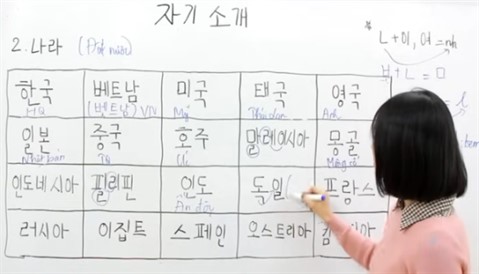 자기 소개
2. 나라 (Đất nước)
* ㄴ + 이, 여 = nh
ㅂ + ㄴ = ㅁ
한국 베트남 미국 태국 영국
HQ (벳트남) VN Mỹ Thái Lan Anh
일본 중국 호주 말레이시아 몽골
Nhật Bản TQ Úc Mông Cổ
인도네시아 필리핀 인도 독일 ( 프랑스
Ấn độ
러시아 이집트 스페인 오스트리아